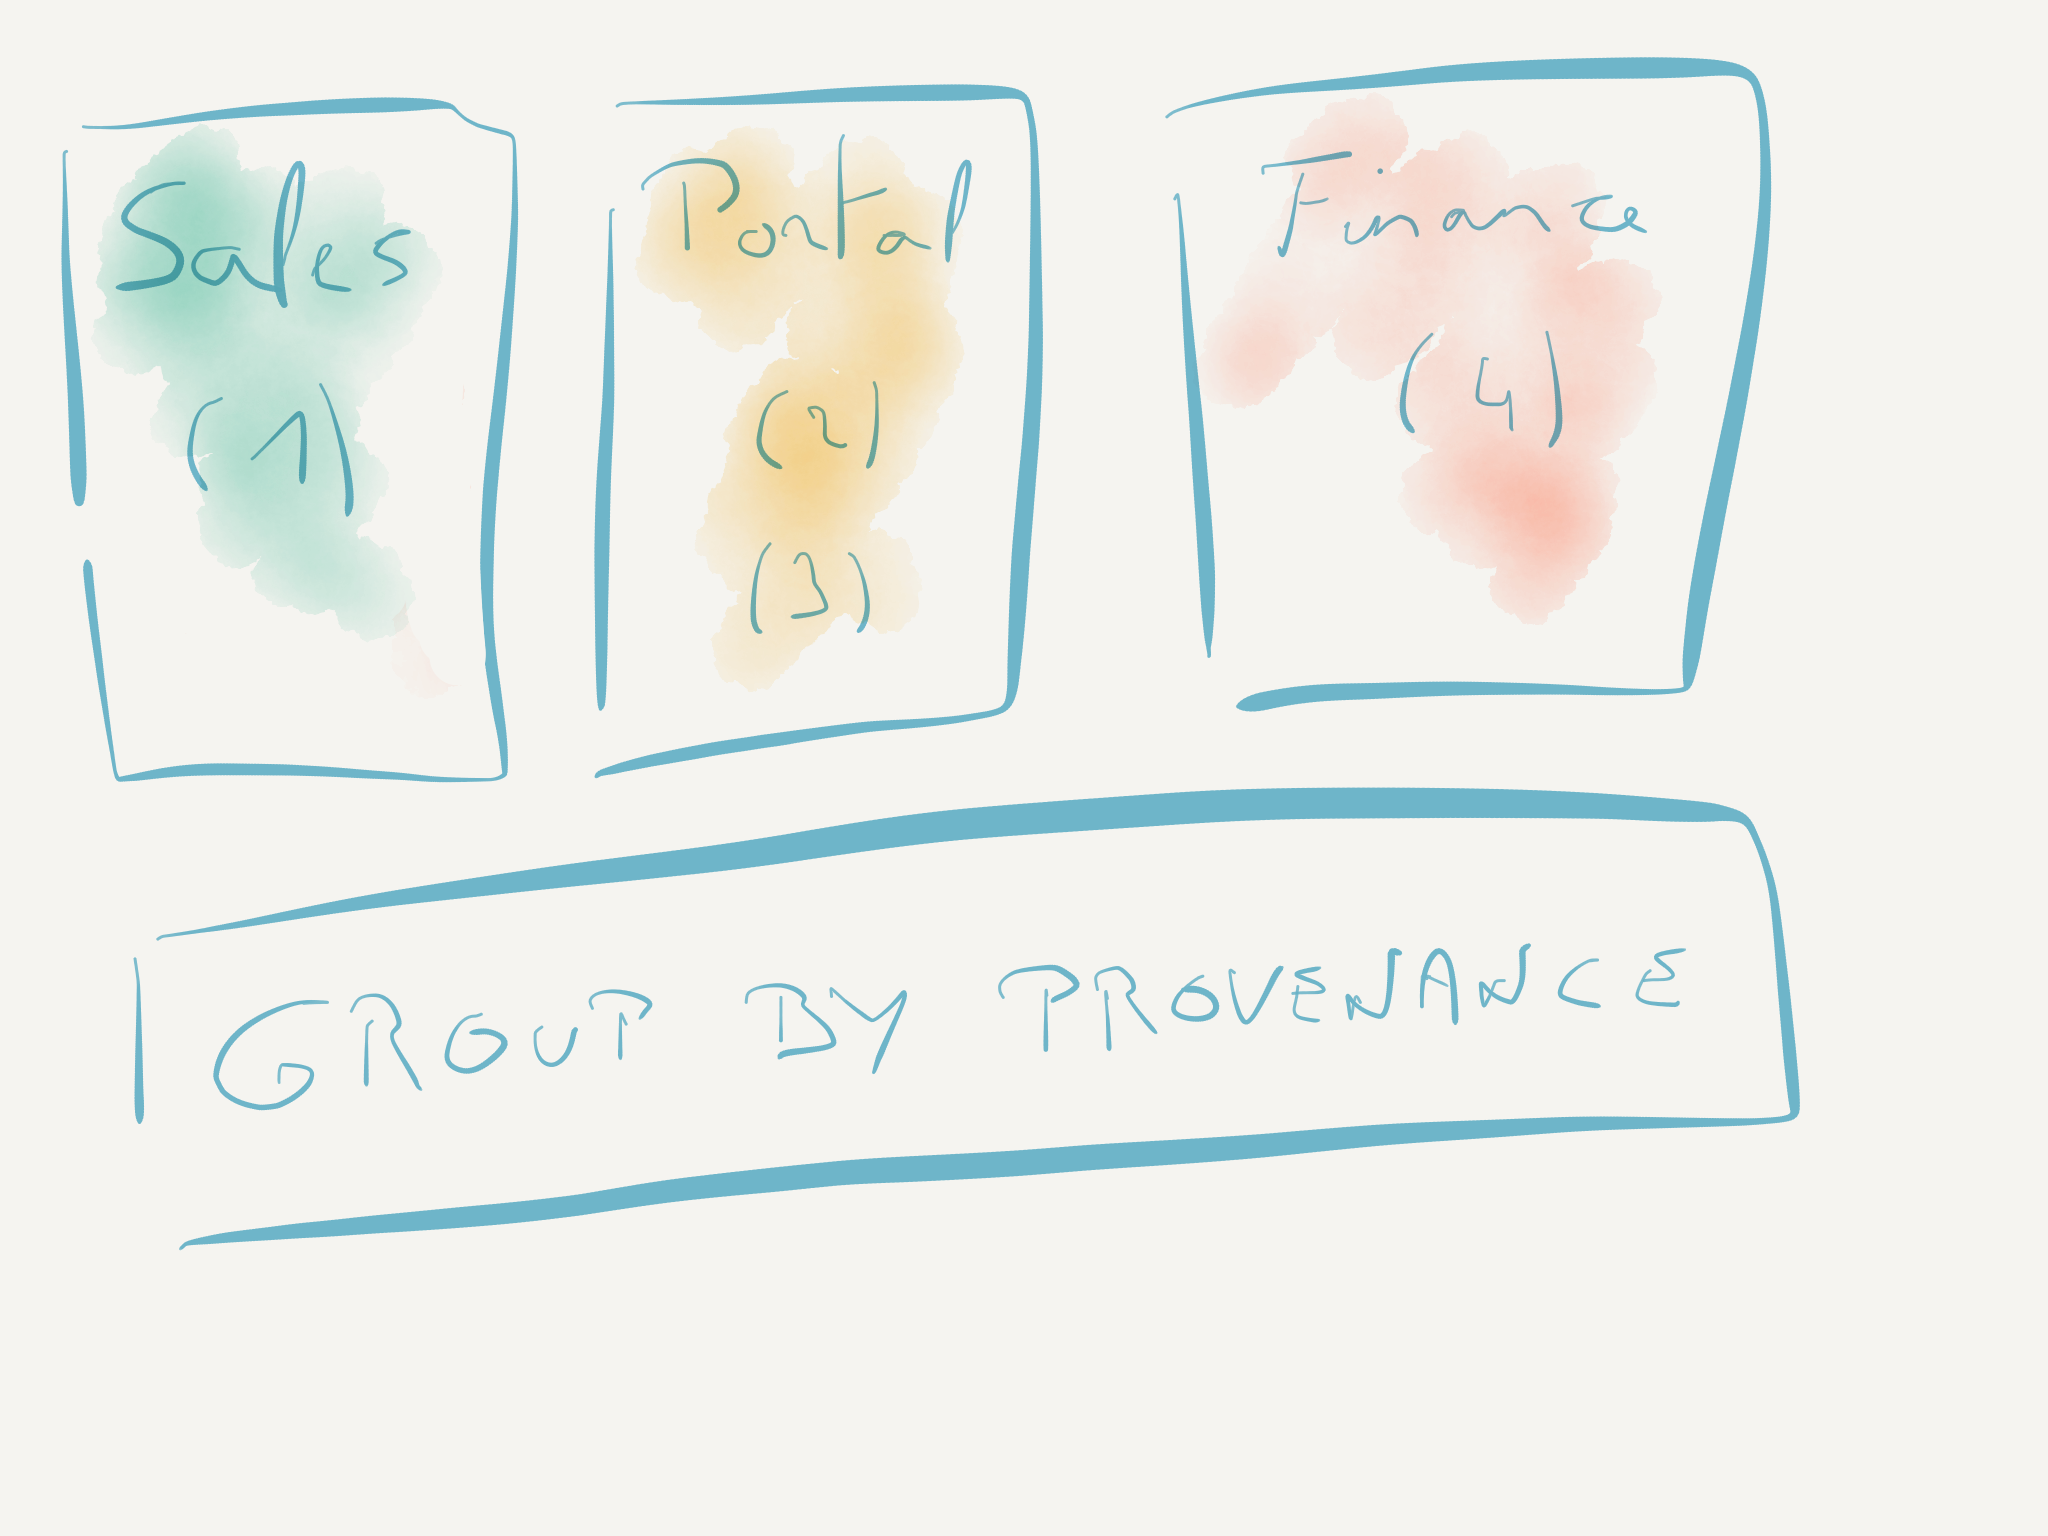 Sales
(1)
Portal
(2)
(3)
Finance
(4)
GROUP BY PROVENANCE